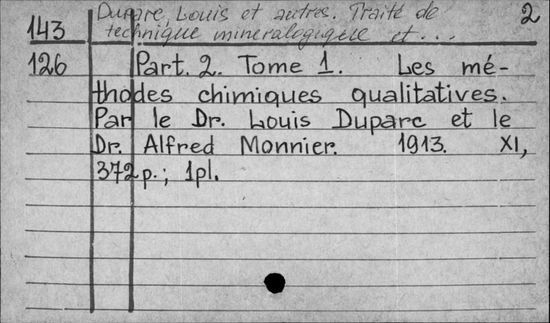 Duparc, Louis et autres. Traité de 2
143 technique mineralogiqúe et...
126 Part. 2. Tome 1. Les mé-
thodes chimiques qualitatives.
Par le Dr. Louis Duparc et le
Dr. Alfred Monnier. 1913. XI,
372 p.; 1pl.